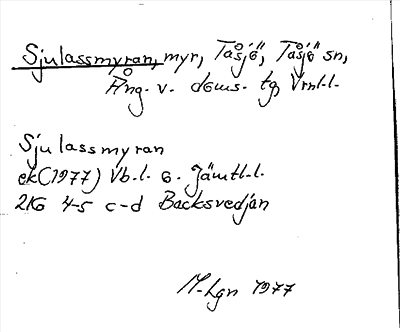 Sjulassmyran, myr, Tåsjö, Tåsjö sn,
Ång. v. doms. tg, Vrnl-l.
Sjulassmyran
ek(1977) Vb.l. o. Jämtl-l.
21G 4-5 c-d Backsvedjan
M-Lgn 1977